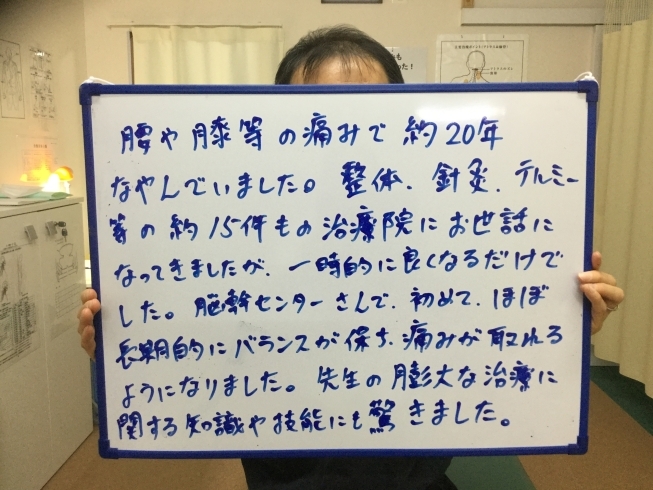 腰や膝等の痛みで約20年
なやんでいました。整体、針灸、テルミー
等の約15件もの治療院にお世話に
なってきましたが、一時的に良くなるだけで
した。脳幹センターさんで、初めて、ほぼ
長期的にバランスが保ち、痛みが取れる
ようになりました。先生の膨大な治療に
関する知識や技能にも驚きました。